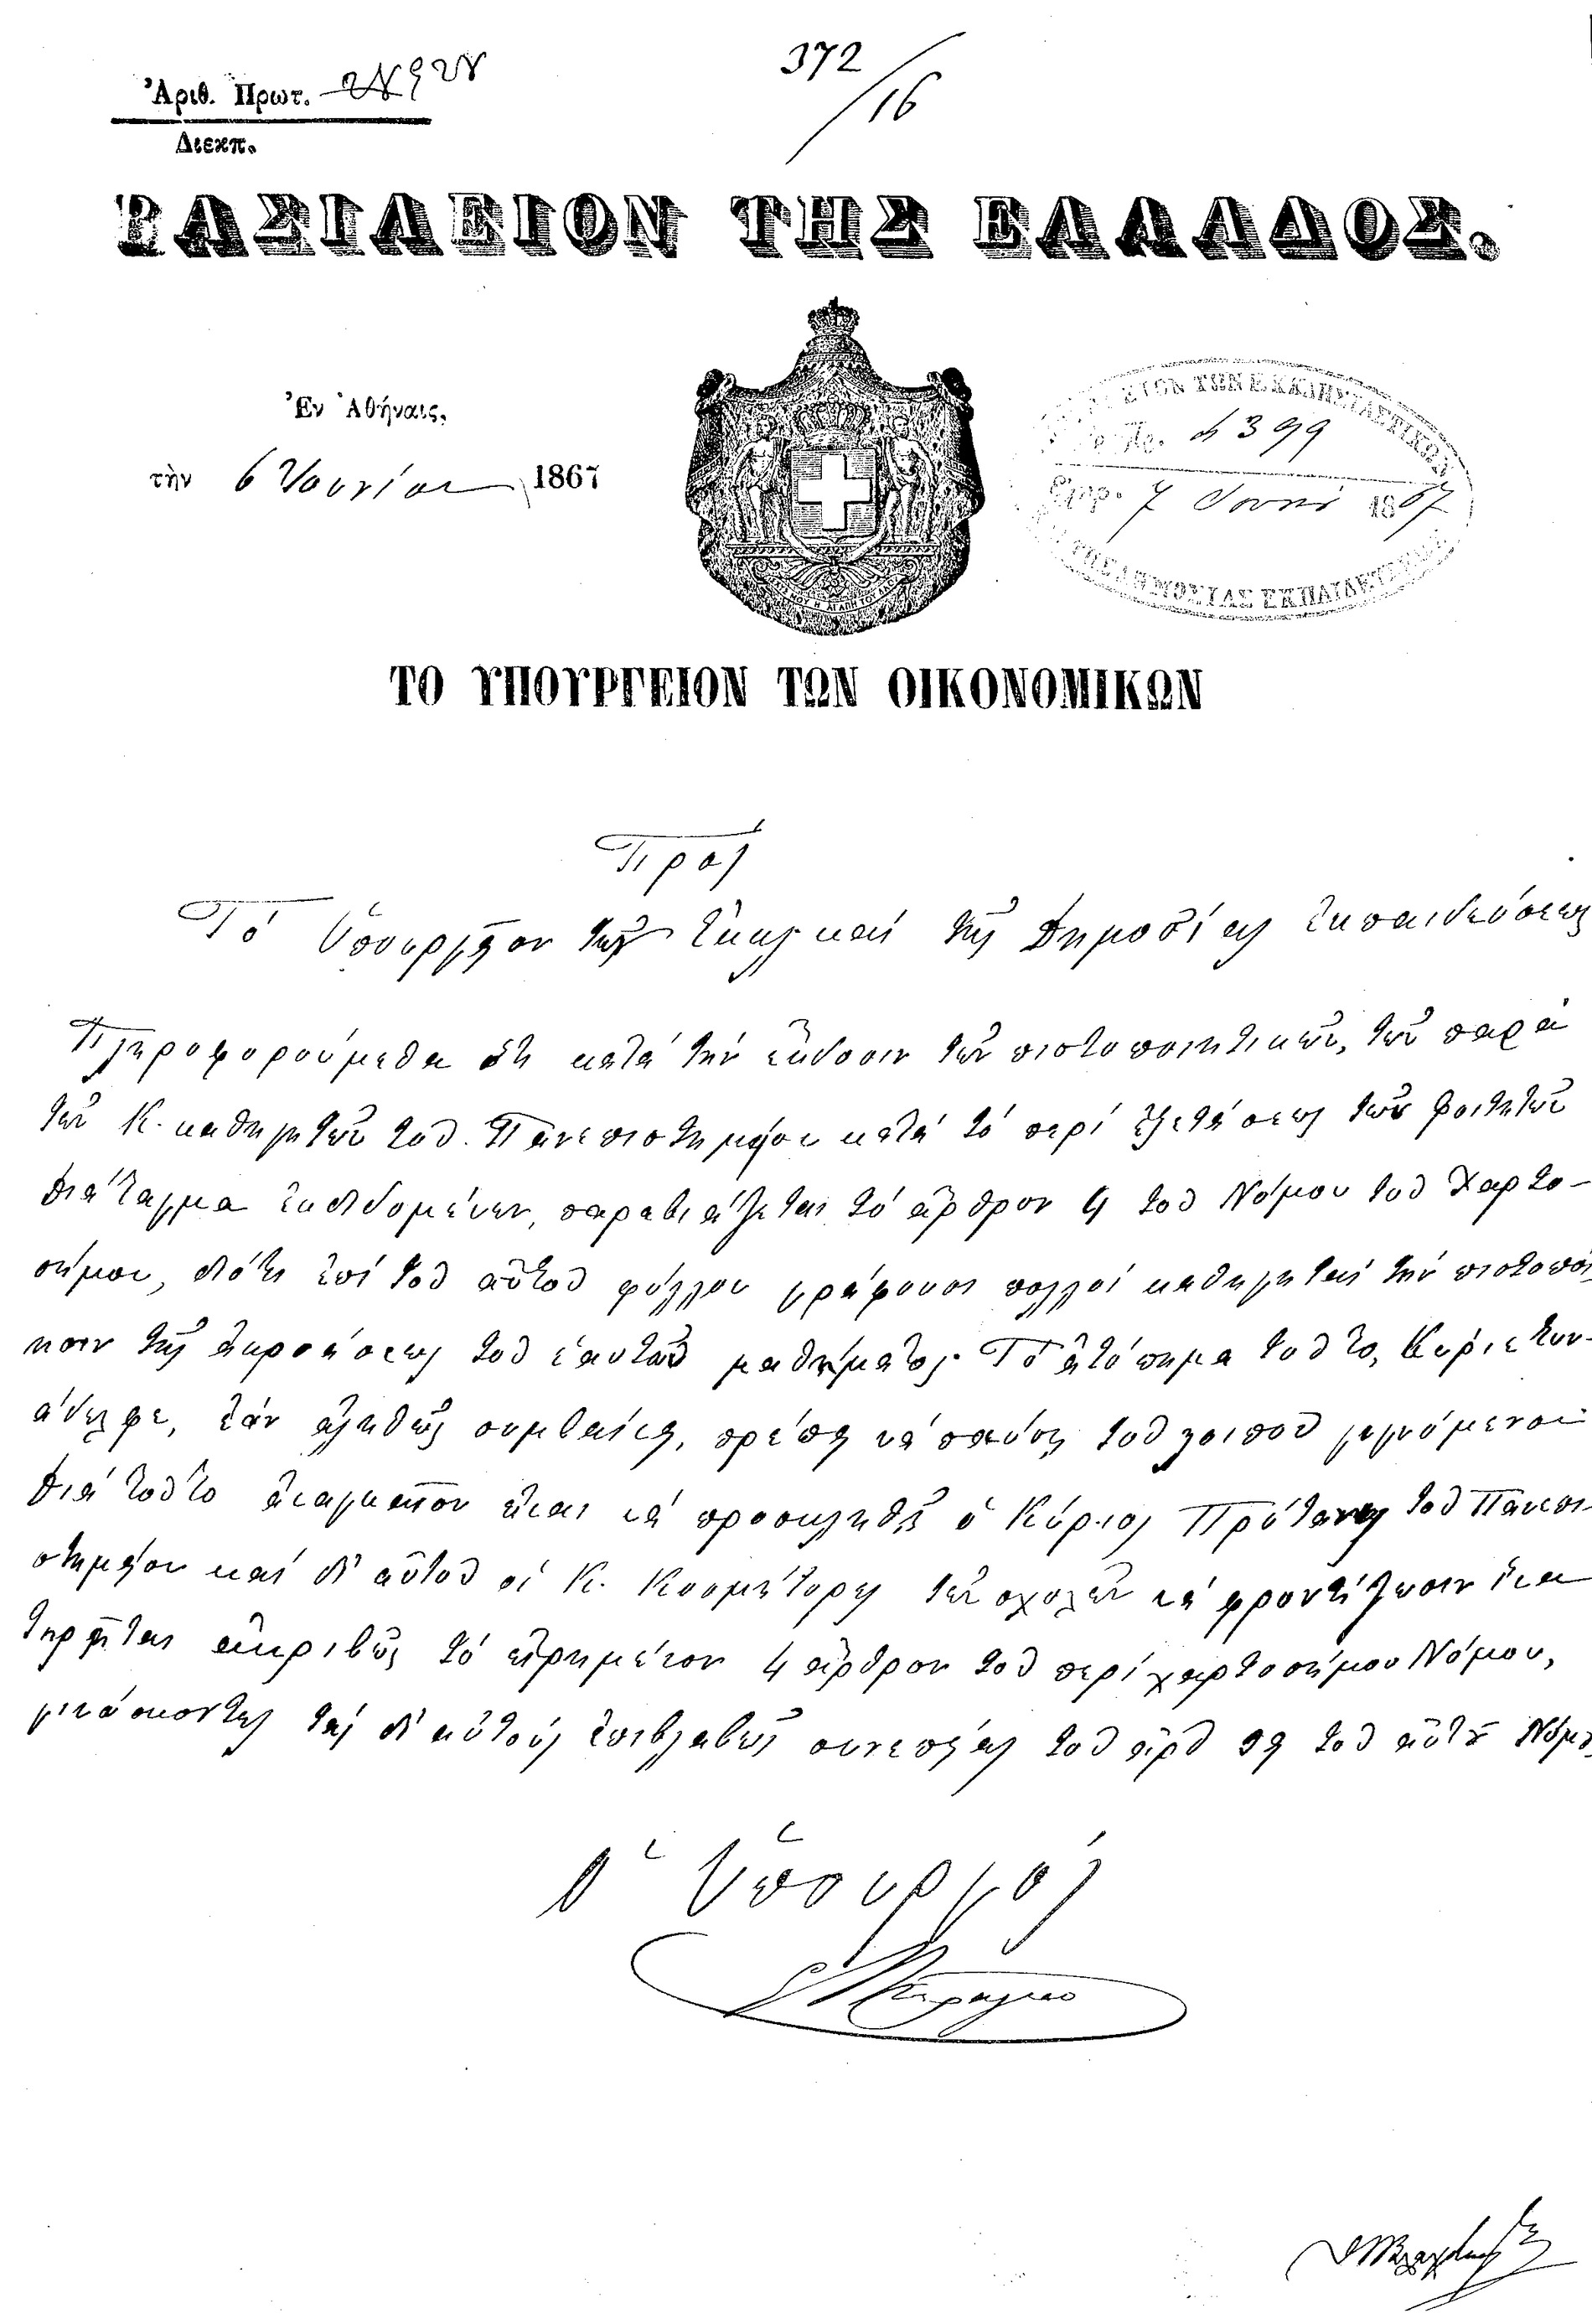 372
/16
Ἀριθ. Πρωτ.
Διεκπ.
ΒΑΣΙΛΕΙΟΝ ΤΗΣ ΕΛΛΑΔΟΣ.
Ἐν Ἀθήναις,
τὴν 6 Ἰουνίου 1867
ΤΩΝ ΕΚΚΛΗΣΙΑΣΤΙΚΩΝ
399
7 Ἰουνί 1867
ΤΗΣ ΔΗΜΟΣΙΑΣ ΕΚΠΑΙΔΕΥΣΕΩΣ
ΜΟΥ Η ΑΓΑΠΗ ΤΟΥ ΛΑΟΥ
ΤΟ ΥΠΟΥΡΓΕΙΟΝ ΤΩΝ ΟΙΚΟΝΟΜΙΚΩΝ
Πρὸς
Τὸ Ὑπουργεῖον τῶν Ἐκκλ. καὶ τῆς Δημοσίας Ἐκπαιδεύσεως
Πληροφορούμεθα ὅτι κατὰ τὴν ἔκδοσιν τῶν πιστοποιητικῶν, τῶν παρὰ
τῶν Κ. καθηγητῶν τοῦ Πανεπιστημίου κατὰ τὸ περὶ ἐξετάσεως τῶν φοιτητῶν
διάταγμα ἐκδιδομένων, παραβιάζεται τὸ ἄρθρον 4 τοῦ Νόμου τοῦ Χαρτο-
σήμου, διότι ἐπὶ τοῦ αὐτοῦ φύλλου γράφουσι πολλοὶ καθηγηταὶ τὴν πιστοποί
ησιν τῆς ἀκροάσεως τοῦ ἑαυτῶν μαθήματος. Τὸ ἀτόπημα τοῦτο, Κύριε συν-
άδελφε, ἐὰν ἀληθῶς συμβαίνῃ, πρέπει νὰ παύσῃ τοῦ λοιποῦ γιγνόμενον
διὰ τοῦτο ἀναγκαῖον εἶναι νὰ προσκληθῇ ὁ Κύριος Πρύτανις τοῦ Πανεπι-
στημίου καὶ δι' αὐτοῦ οἱ Κ. Κοσμήτορες τῶν σχολῶν νὰ φροντίζωσιν ἵνα
τηρῆται ἀκριβῶς τὸ εἰρημένον 4 ἄρθρον τοῦ περὶ χαρτοσήμου Νόμου,
γινώσκοντες τὰς δι' αὐτοὺς ἐπιβλαβεῖς συνεπείας τοῦ ἄρθ. 19 τοῦ αὐτοῦ Νόμου
Ὁ Ὑπουργός